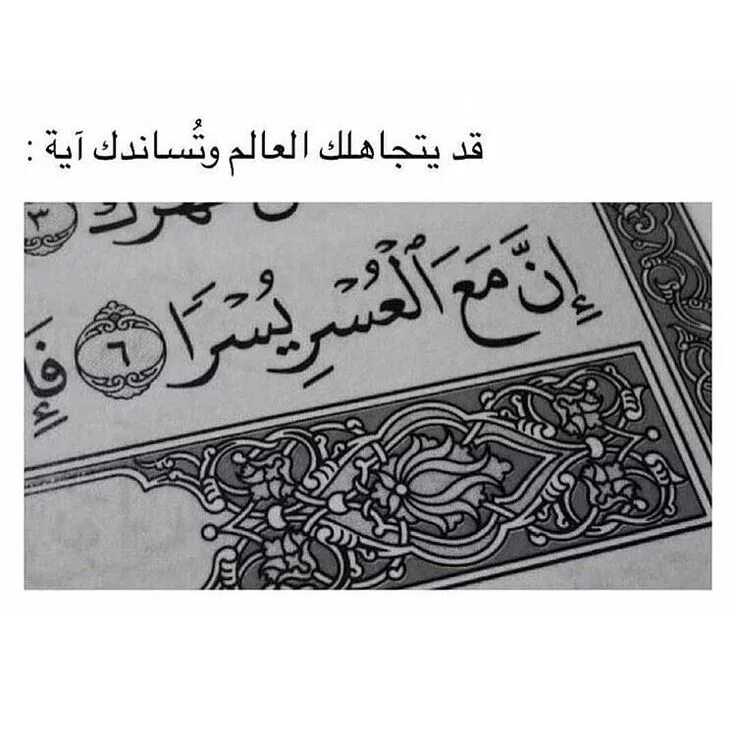 قد يتجاهلك العالم وتُساندك آية :
ظَهْرَكَ ٣
إِنَّ مَعَ ٱلْعُسْرِ يُسْرًا ٦ فَإِ